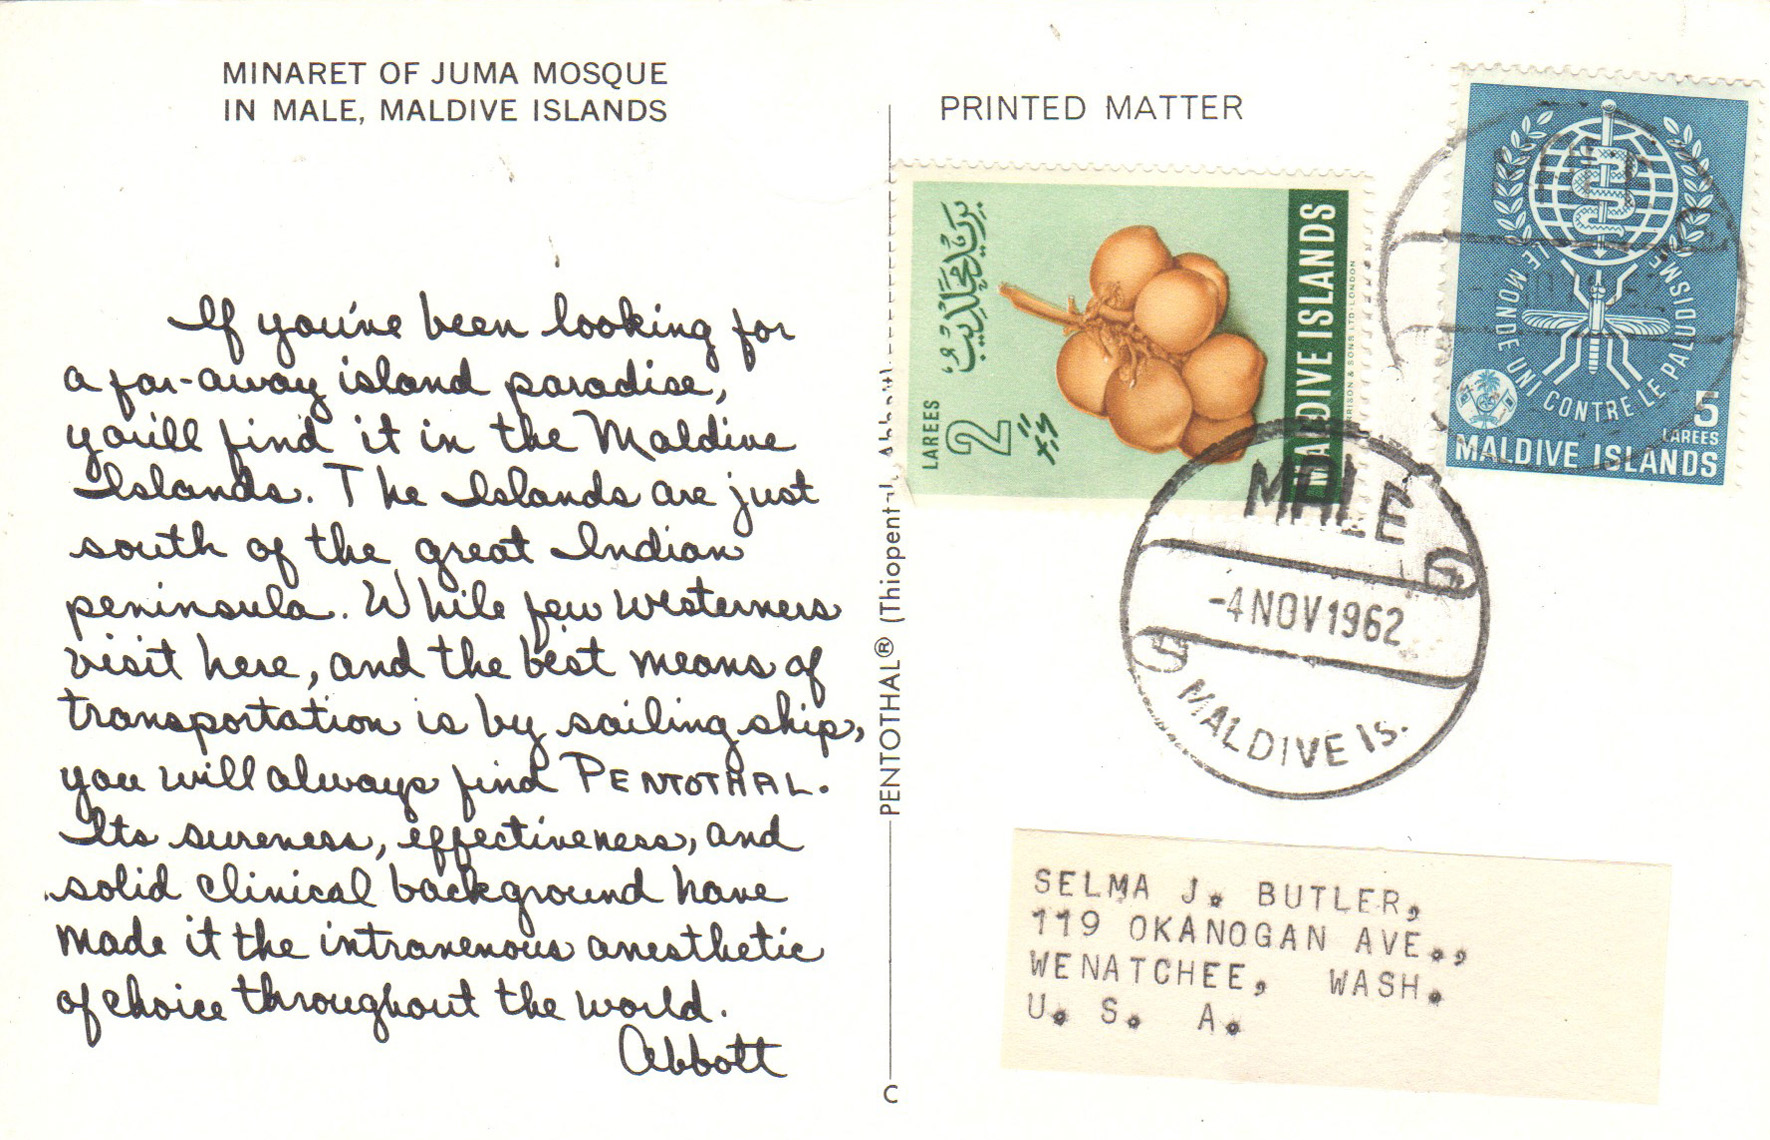 MINARET OF JUMA MOSQUE
IN MALE, MALDIVE ISLANDS
If you've been looking for
a far-away island paradise,
you'll find it in the Maldive
Islands. The Islands are just
south of the great Indian
peninsula. While few westerners
visit here, and the best means of
transportation is by sailing ship,
you will always find PENTOTHAL.
Its sureness, effectiveness, and
solid clinical background have
made it the intravenous anesthetic
of choice throughout the world.
Abbott
PENTOTHAL® (Thiopental, Abbott)
C
PRINTED MATTER
LAREES
2
MALDIVE ISLANDS
HARRISON & SONS LTD LONDON
LE MONDE UNI CONTRE LE PALUDISME
5
LAREES
MALDIVE ISLANDS
MALE
-4 NOV 1962
MALDIVE IS.
SELMA J. BUTLER,
119 OKANOGAN AVE.,
WENATCHEE, WASH.
U. S. A.